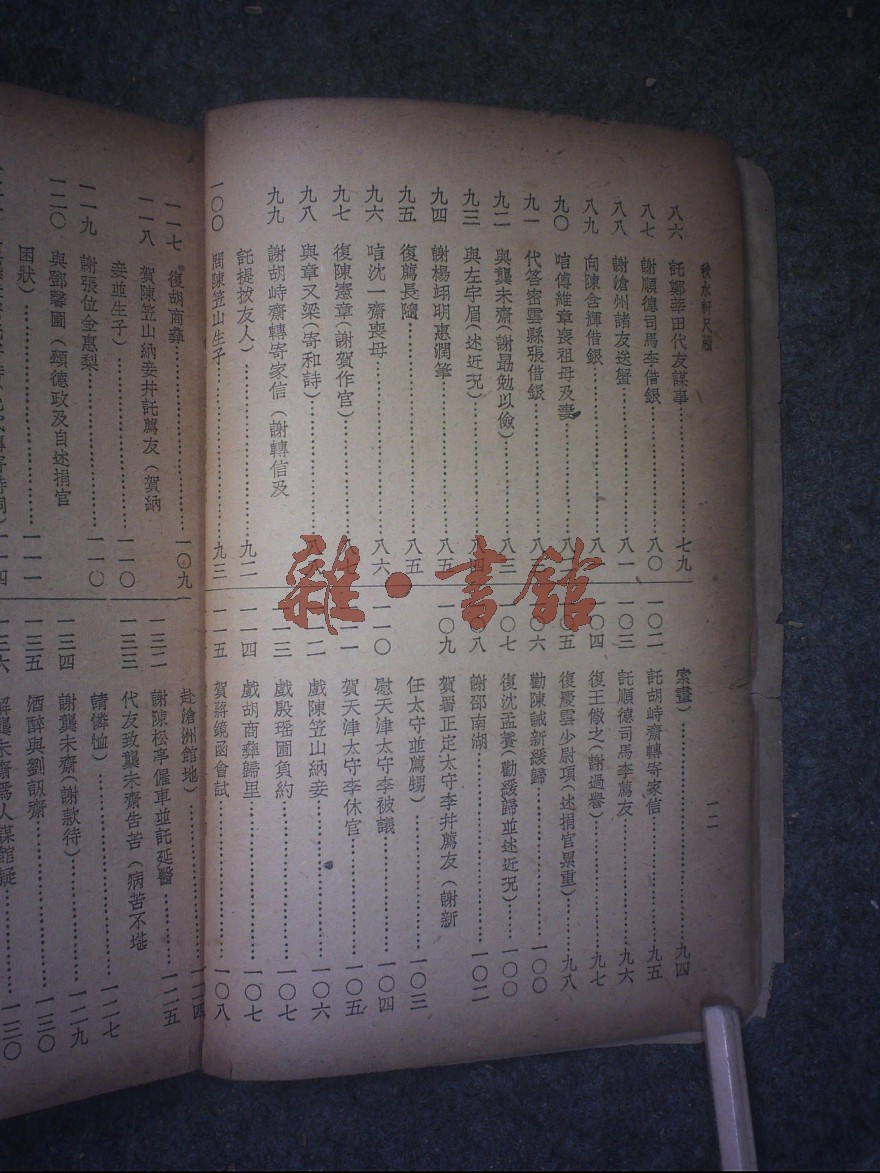 秋水軒尺牘
一二
八六 託鄭莘田代友謀事……七九
八七 謝順德司馬李借銀……八〇
八八 謝滄州諸友送蟹……八一
八九 向陳含輝借銀……八
九〇 唁傅維章喪祖母及妻……八
九一 代答密雲縣張借銀……八三
九二 與龔未齋(謝勗勉以儉)……八三
九三 與左宇眉(述近況)……八四
九四 謝楊翊明惠潤筆……八五
九五 復薦長隨……八五
九六 唁沈一齋喪母……八六
九七 復陳憲章(謝賀作官)……八七
九八 與章又梁(寄和詩)……八八
九九 謝胡峙齋轉寄家信(謝轉信及
託提拔友人)……九二
一〇〇 問陳笠山生子……九三
索畫)……九四
一〇二 託胡峙齋轉寄家信……九五
一〇三 託順德司馬李薦友……九六
一〇四 復王儆之(謝過譽)……九七
一〇五 復慶雲少尉項(述捐官累重)……九八
一〇六 勸陳誠新緩歸……一〇〇
一〇七 復沈孟養(勸緩歸並述近況)……一〇〇
一〇八 謝邵南湖……一〇二
一〇九 賀署正定太守李并薦友(謝新
任太守並薦甥)……一〇三
一一〇 慰天津太守李被議……一〇四
一一一 賀天津太守李休官……一〇五
一一二 戲陳笠山納妾……一〇六
一一三 戲殷瑶圃負約……一〇七
一一四 戲胡商彝歸里……一〇七
一一五 賀蔣鏡函會試……一〇八
一一七 復胡商彝……一〇九
一一八 賀陳笠山納妾并託薦友(賀納
妾並生子)……一一〇
一一九 謝張位金惠梨……一一〇
一二〇 與鄧馨圃(頌德政及自述捐官
困狀)……一一一
一一四
赴滄洲館地)……一二四
一三二 謝陳松亭僱車並託延醫……一二五
一三三 代友致龔未齋告苦(病苦不堪
請憐恤)……一二七
一三四 謝龔未齋(謝款待)……一二九
一三五 酒醉與劉訒齋……一三〇
一三六 解龔未齋爲人謀館疑……一三〇
雜·書館